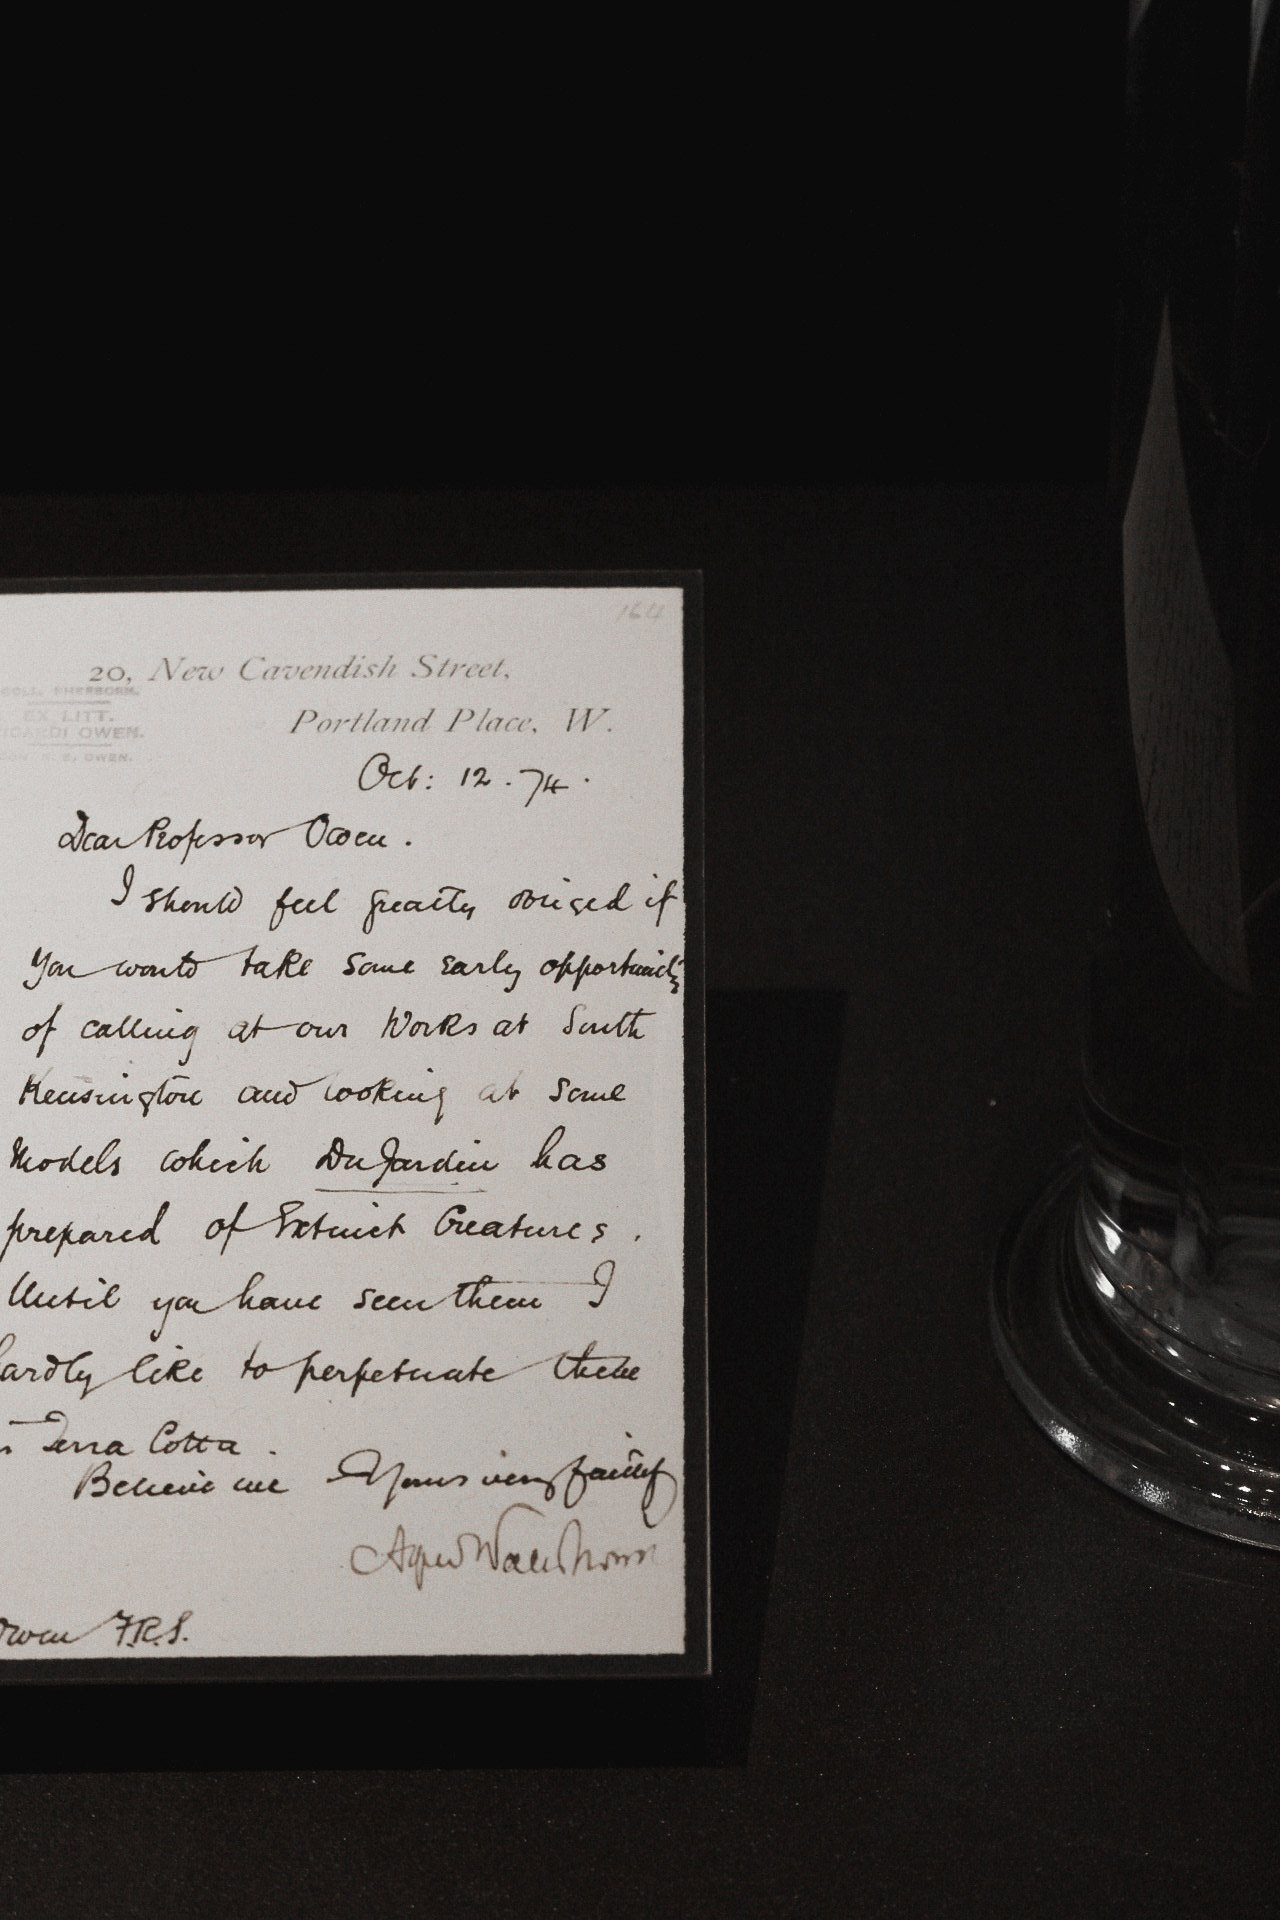 1611
20, New Cavendish Street,
COLL. SHERBORN.
Portland Place, W.
EX LITT.
ICARDI OWEN.
OWEN.
Oct: 12. 74.
Dear Professor Owen.
I should feel greatly obliged if
you would take some early opportunity
of calling at our Works at South
Kensington and looking at some
Models which DuJardin has
prepared of Extinct Creatures.
Until you have seen them I
hardly like to perpetuate them
Terra Cotta.
Believe me Yours very faithfy
Alfred Waterhouse
Owen F.R.S.